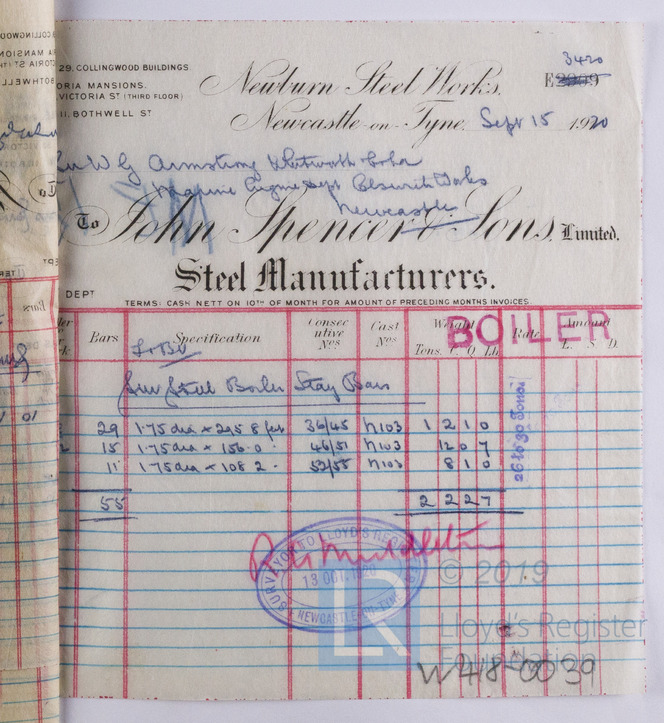 29, COLLINGWOOD BUILDINGS.
ORIA MANSIONS.
VICTORIA ST (THIRD FLOOR)
11, BOTHWELL ST
Newburn Steel Works,
3420
E
Newcastle-on-Tyne, Sept 15 1920
W G Armstrong Whitworth & Co Ltd
Marine Engine Dept Works
Newcastle
To John Spencer & Sons, Limited.
Steel Manufacturers.
DEPT
TERMS: CASH NETT ON 10TH OF MONTH FOR AMOUNT OF PRECEDING MONTHS INVOICES.
BOILER
Bars Specification Consecutive Nos Cast Nos Weight Rate Amount
Tens. C. Q. Lb. L. S. D.
Steel Boiler Stay Bars
29 1.75 dia × 295.8 36/45 N103 1 2 1 0
15 1.75 dia × 156.0 46/51 N103 12 0 7
11 1.75 dia × 108.2 52/55 N103 8 1 0
26 to 30 Tons
55 2 2 2 7
SURVEYOR TO LLOYD'S REGISTER
13 OCT. 1920
NEWCASTLE-ON-TYNE
LR
© 2019
Lloyd's Register
Foundation
W418-0039